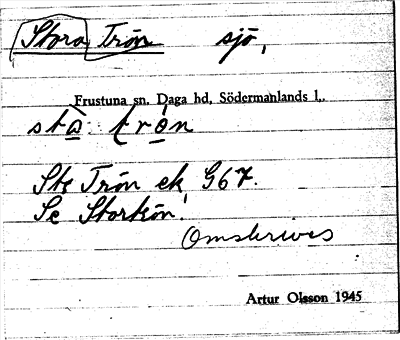 Stora Trön sjö,
Frustuna sn. Daga hd, Södermanlands l..
stὼ. trön
Ste Trön ek G67.
Se Storkön!
Omskrives
Artur Olsson 1945